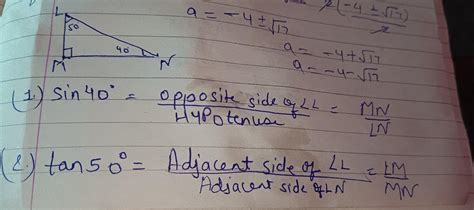 (-4 ± √17)
a = -4 ± √17
L
50
40
M
N
a = -4 + √17
a = -4 - √17
(1.) Sin 40° = opposite side of ∠L / Hypotenuse = MN / LN
(2.) tan 50° = Adjacent side of ∠L / Adjacent side of ∠N = LM / MN